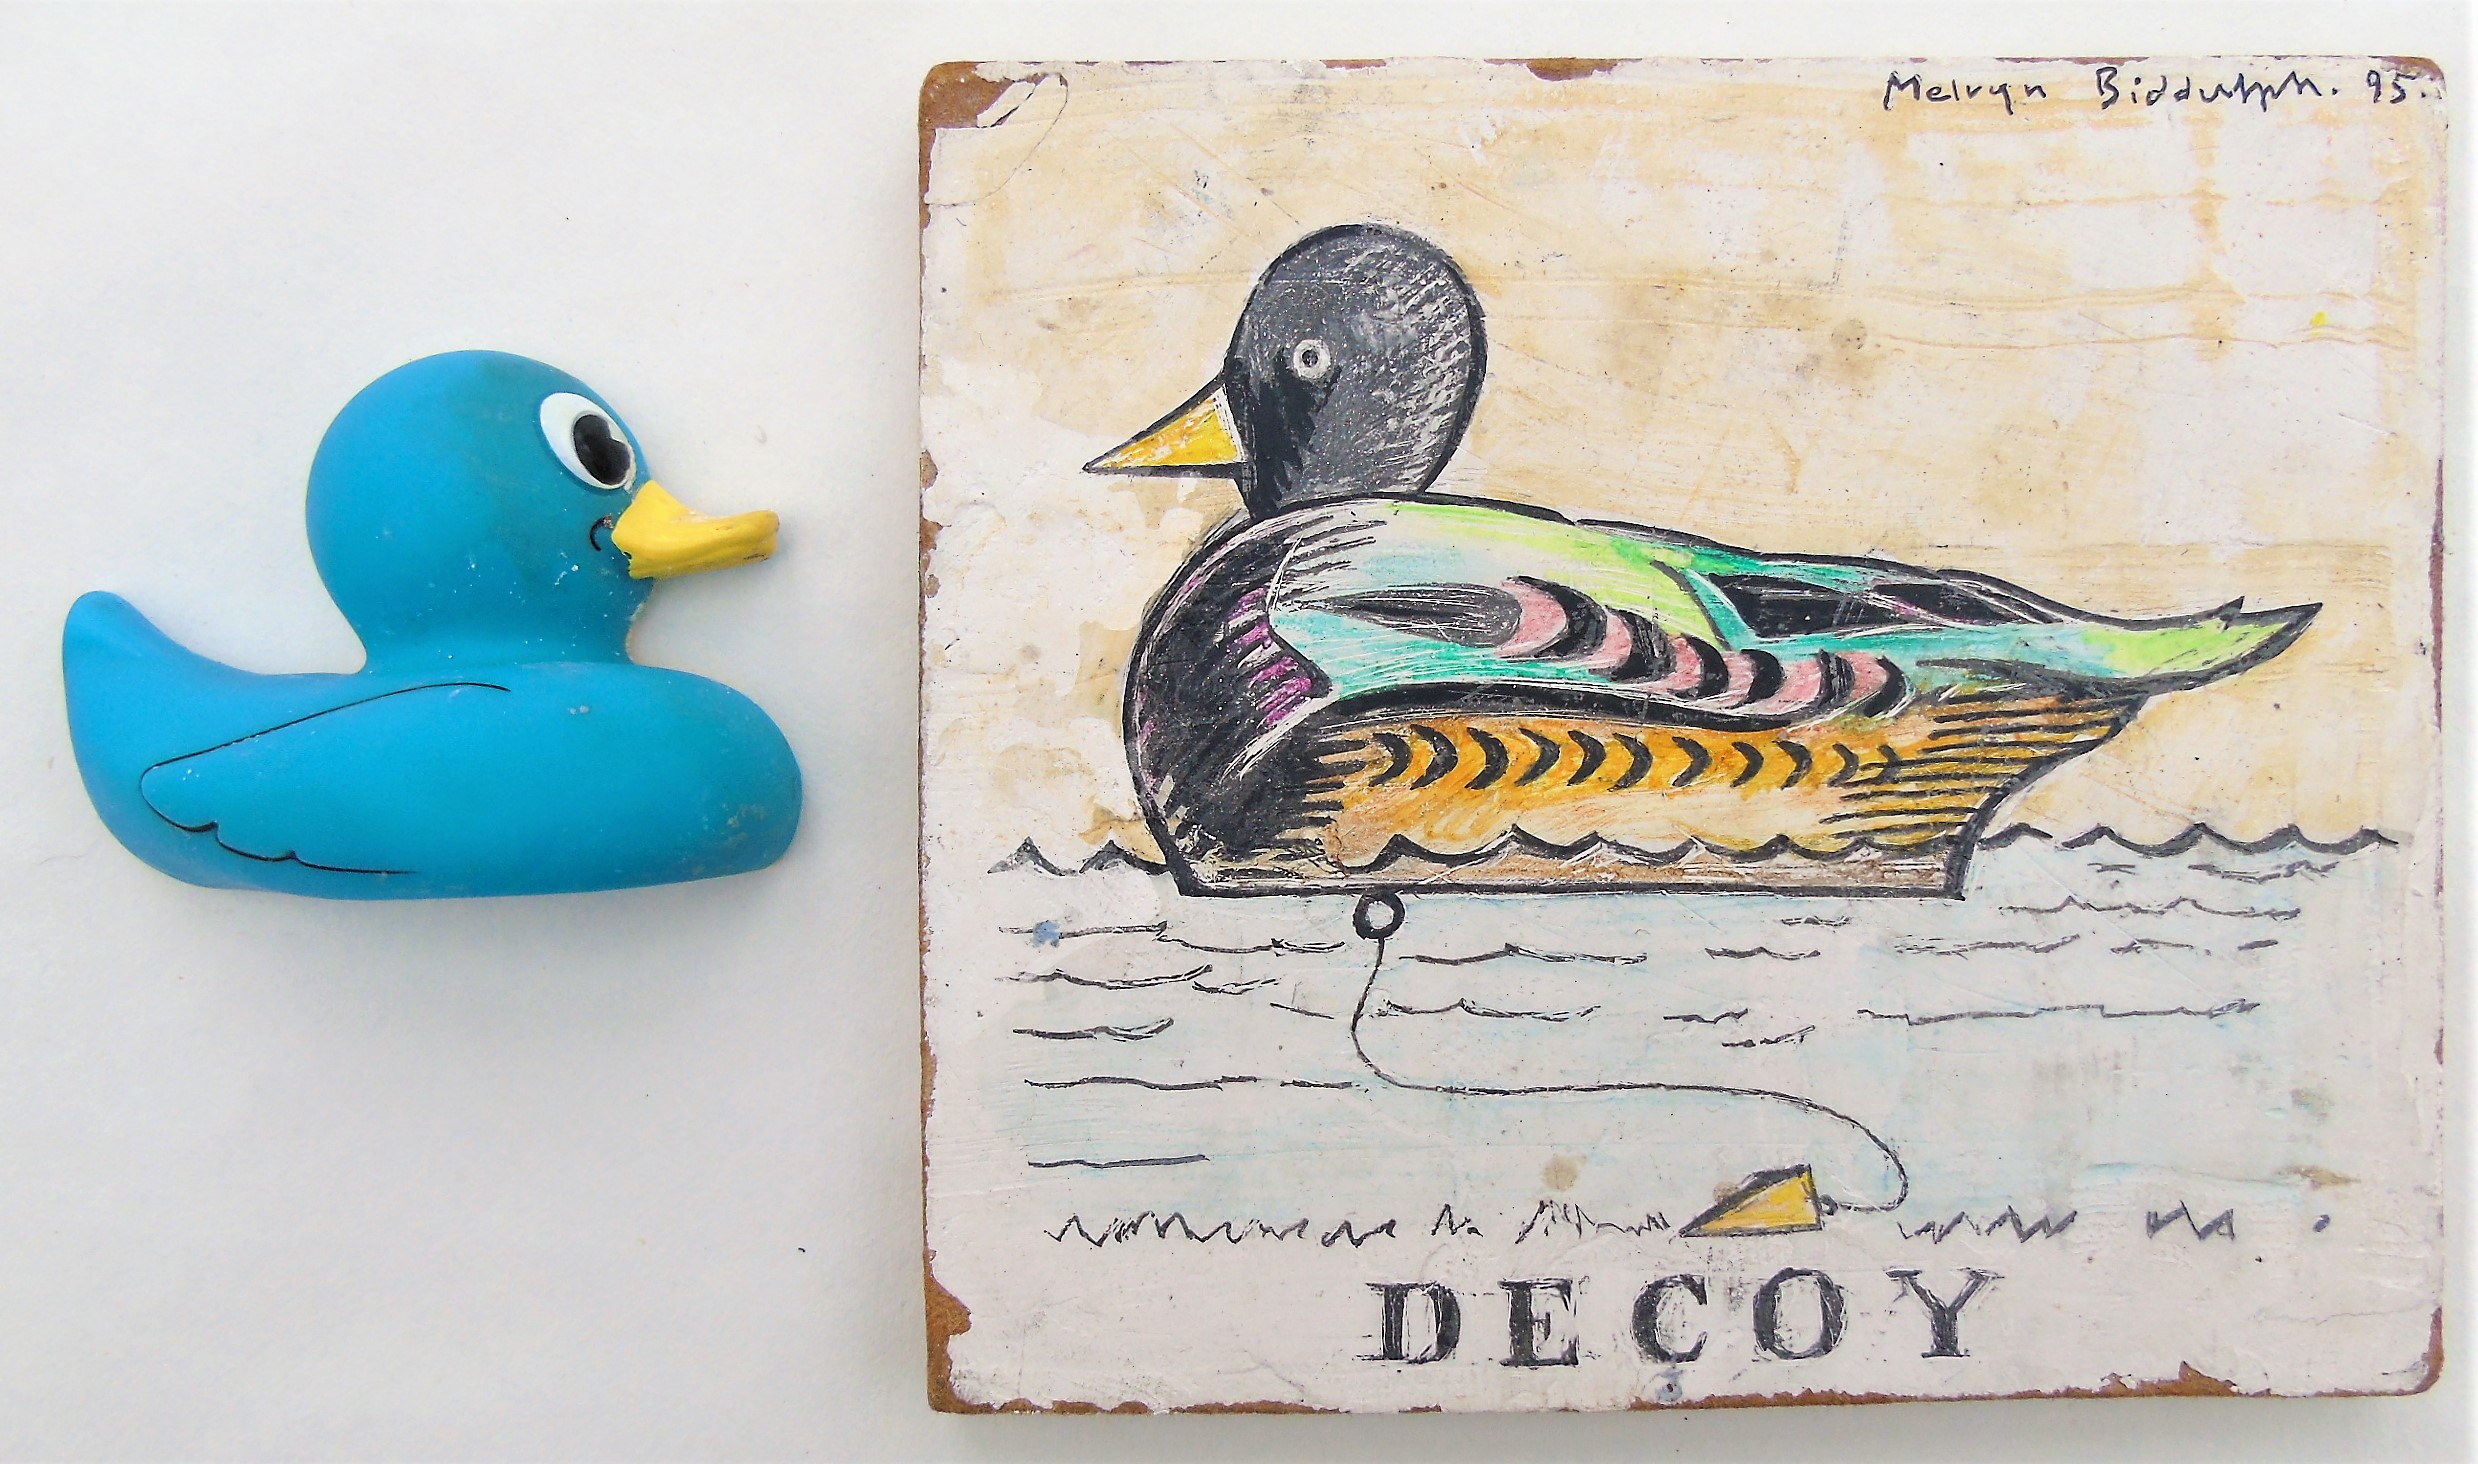 Melvyn Biddulph. 95.
DECOY